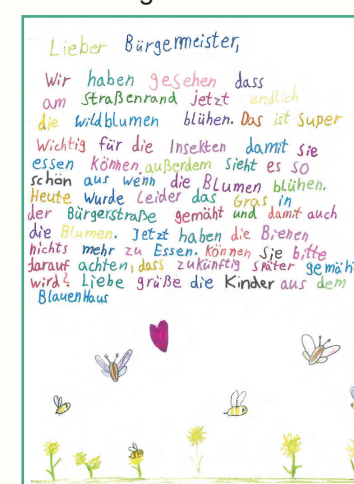 Lieber Bürgermeister,
Wir haben gesehen dass
am Straßenrand jetzt endlich
die wildblumen blühen. Das ist super
Wichtig für die Insekten damit sie
essen können, außerdem sieht es so
schön aus wenn die Blumen blühen.
Heute wurde Leider das Gras in
der Bürgerstraße gemäht und damit auch
die Blumen. Jetzt haben die Bienen
nichts mehr zu Essen. können Sie bitte
darauf achten, dass zukünftig später gemäht
wird? Liebe grüße die Kinder aus dem
BlauenHaus